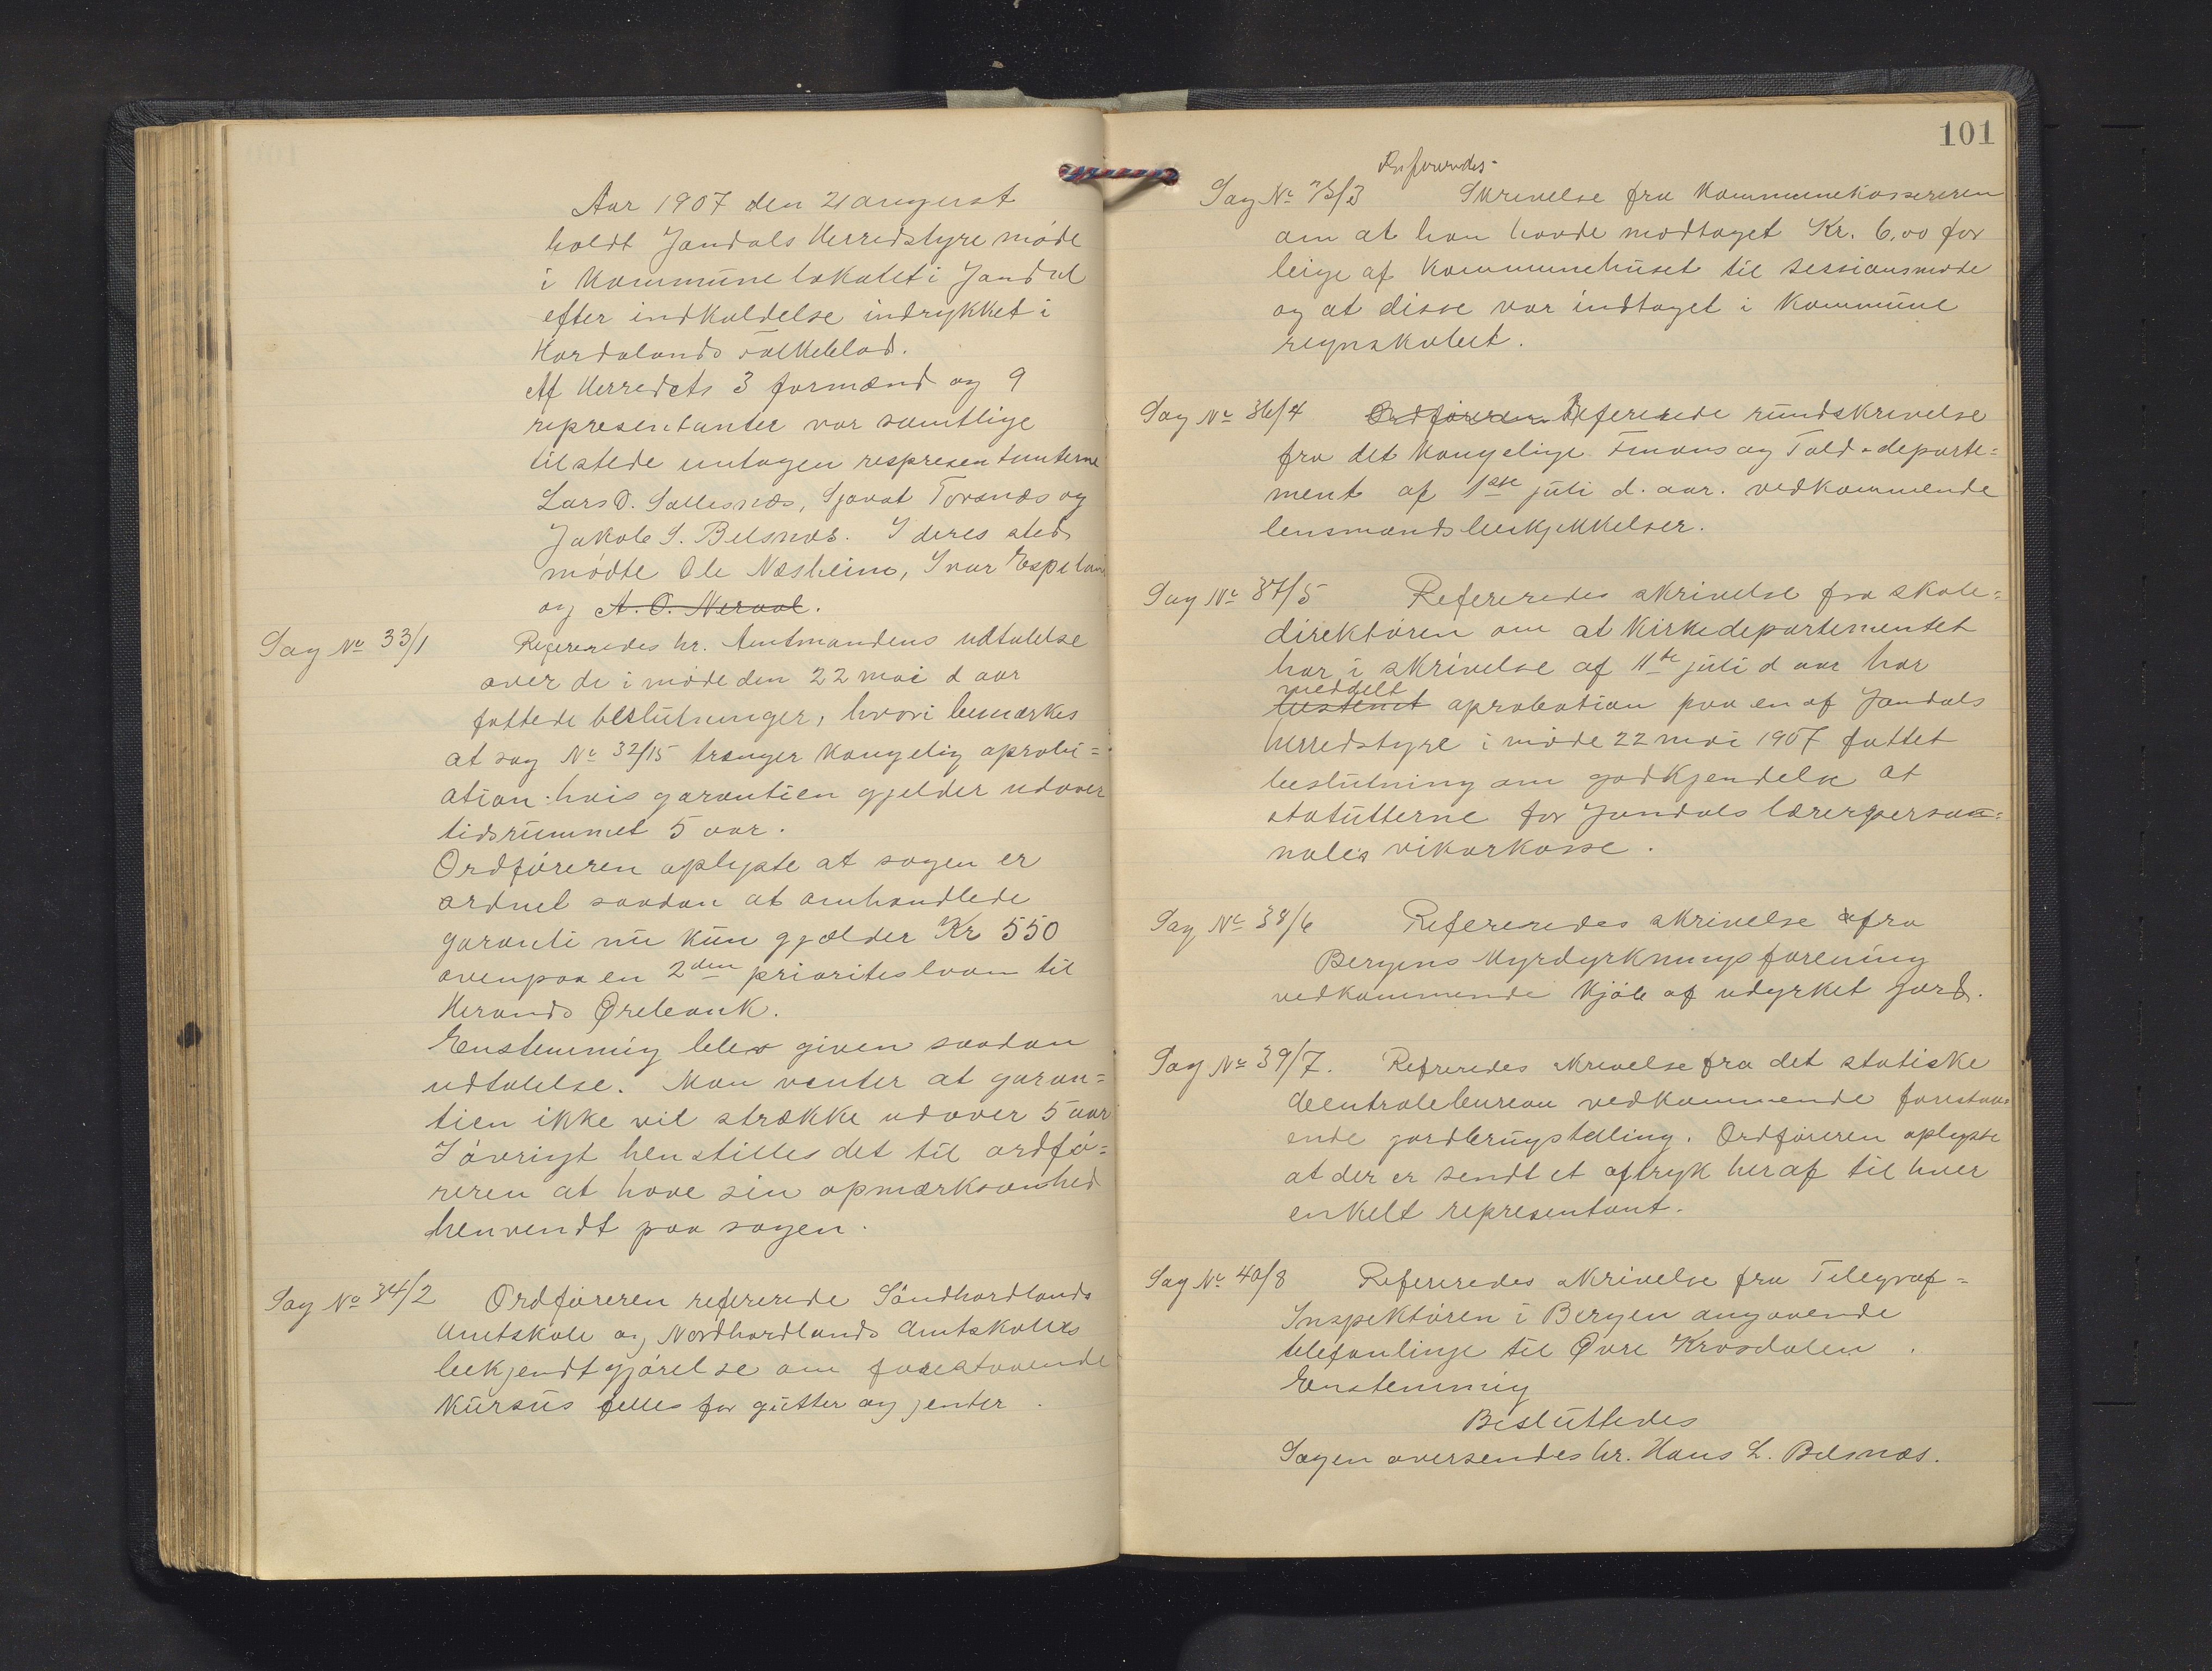 Aar 1907 den 21 august
holdt Jondals Herredstyre møde
i Kommunelokalet i Jondal
efter indkaldelse indrykket i
Hordalands Folkeblad.
Af Herredets 3 formænd og 9
representanter var samtlige
tilstede untagen respresentanterne
Lars O. Sallesnæs, Sjovat Torsnæs og
Jakob S. Belsnæs. I deres sted
mødte Ole Næsheim, Ivar Espeland
og A. O. Nerool.
Sag No 33/1 Refereredes hr. Amtmandens udtalelse
over de i møde den 22 mai d aar
fattede beslutninger, hvori bemærkes
at sag No 32/15 trænger Kongelig aprobi=
ation hvis garantien gjelder udover
tidsrummet 5 aar.
Ordføreren oplyste at sagen er
ordnet saadan at omhandlede
garanti nu kun gjælder Kr 550
ovenpaa en 2den prioriteslaan til
Herands Ørebank.
Enstemmig blev given saadan
udtalelse. Man venter at garan=
tien ikke vil strække udover 5 aar
I øvrigt henstilles det til ordfø=
reren at have sin opmærksomhed
henvendt paa sagen.
Sag No 34/2 Ordføreren refererede Søndhordlands
Amtskole og Nordhordlands Amtskoles
bekjendtgjørelse om forestaaende
Kursus felles for gutter og jenter.
101
Refereredes
Sag No 35/3 Skrivelse fra Kommunekassereren
om at han havde modtaget Kr. 6,00 for
leige af Kommunehuset til sessionsmøde
og at disse var indtaget i Kommune
regnskabet.
Sag No 36/4 Ordføreren Refererede rundskrivelse
fra det Kongelige Finans og Told-departe=
ment af 1ste juli d. aar. vedkommende
lensmandsbeskjikkelser.
Sag No 37/5 Refereredes skrivelse fra skole=
direktøren om at Kirkedepartementet
har i skrivelse af 11te juli d aar har
meddelt
bestemt aprobation paa en af Jondals
herredstyre i møde 22 mai 1907 fattet
beslutning om godkjendelse at
statutterne for Jondals lærerperson=
nales vikarkasse.
Sag No 38/6 Refereredes skrivelse fra
Bergens Myrdyrkningsforening
vedkommende Kjøb af udyrket jord.
Sag No 39/7. Refereredes skrivelse fra det statiske
Centralebureau vedkommende forestaa=
ende jordbrugstelling. Ordføreren oplyste
at der er sendt et aftryk heraf til hver
enkelt representant.
Sag No 40/8 Refereredes skrivelse fra Telegraf=
Inspektøren i Bergen angaaende
telefonlinje til Øvre Krosdalen.
Enstemmig
Besluttedes
Sagen oversendes hr. Hans L. Belsnæs.